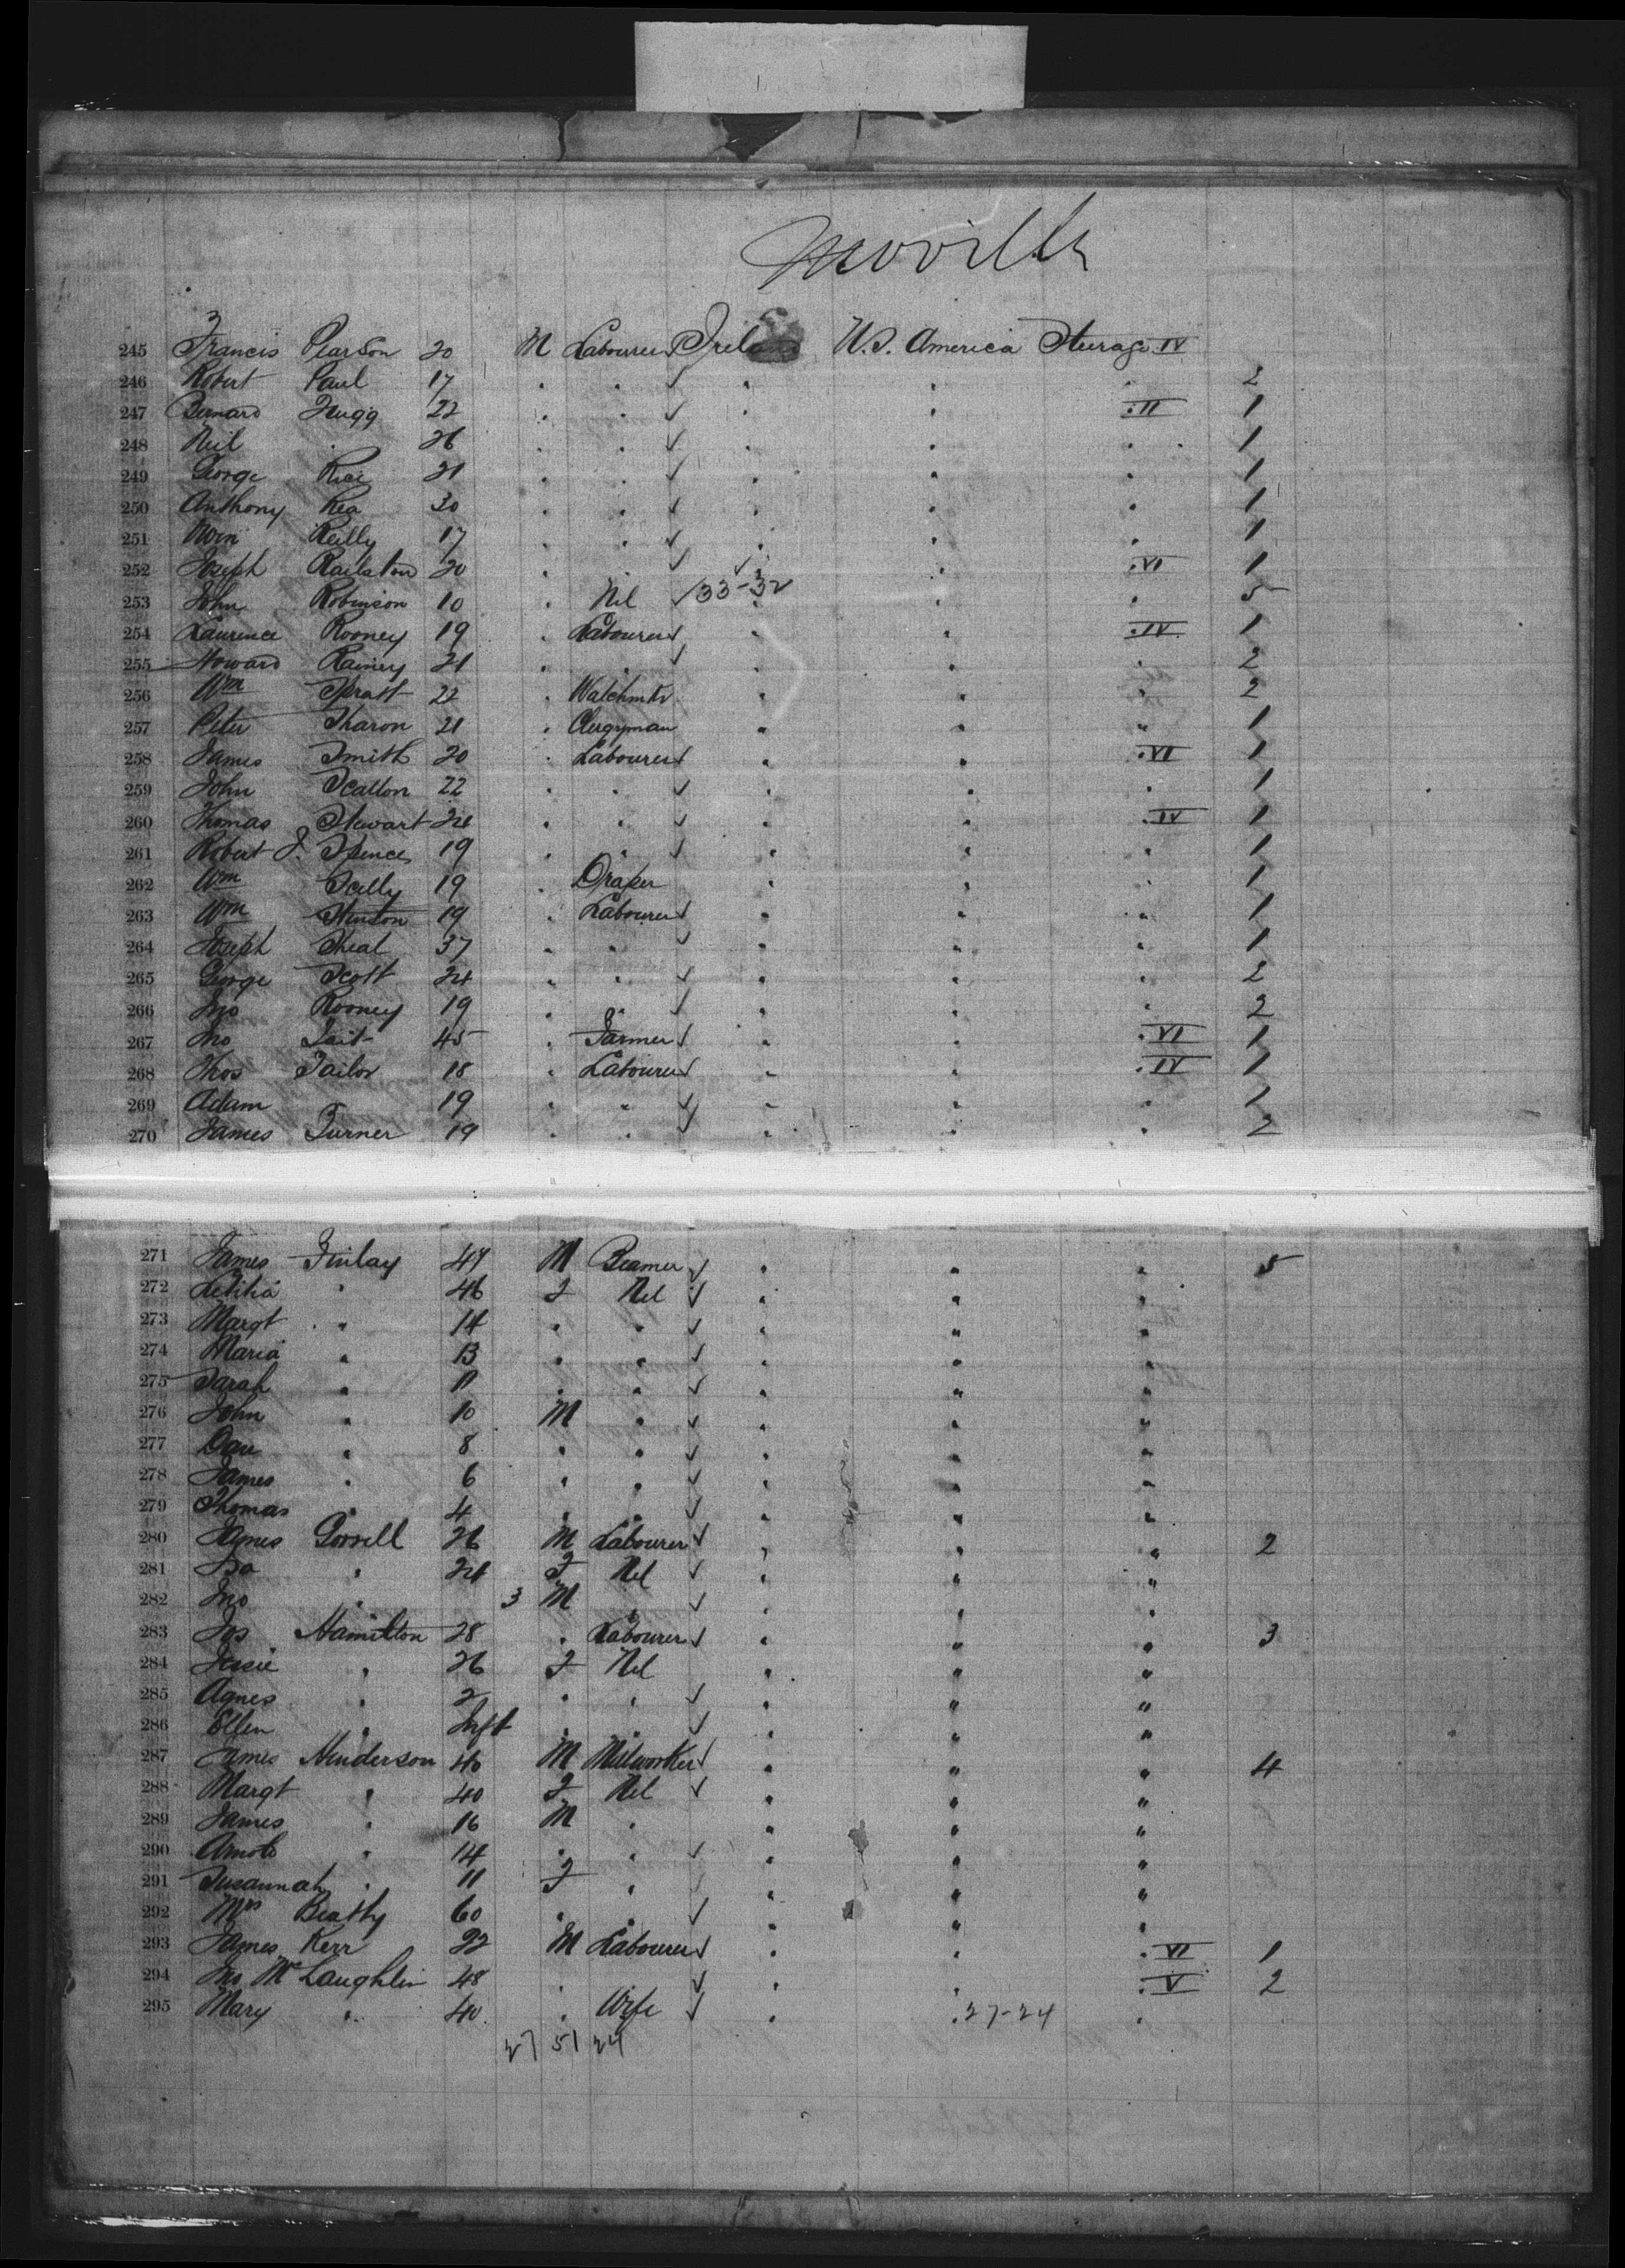 Moville
245 Francis Pearson 20 M Labourer ✓ Ireland U.S. America Sturage IV
246 Robert Paul 17 " " ✓ " " " 2
247 Bernard 22 " " ✓ " " " II 1
248 Neil " 26 " " ✓ " " " 1
249 George Rice 21 " " ✓ " " " 1
250 Anthony Rea 30 " " ✓ " " " 1
251 Reilly 17 " " ✓ " " " 1
252 Joseph Railston 20 " ✓ " " VI 1
253 John Robinson 10 " Nil ✓ 33-32 " " 5
254 Laurence Rooney 19 " Labourer ✓ " " " IV 1
255 Howard Rainey 21 " " ✓ " " " 2
256 Wm Spratt 22 " Watchmkr " " " 2
257 Peter Sharon 21 " Clergyman " " " 1
258 James Smith 20 " Labourer ✓ " " " VI 1
259 John Scallon 22 " " ✓ " " " 1
260 Thomas Stewart " " ✓ " " " IV 1
261 Robert J. Spence 19 " " ✓ " " " 1
262 Wm Scilly 19 " Draper " " " 1
263 Wm Stinson 19 " Labourer ✓ " " " 1
264 Joseph Sheal 37 " " ✓ " " " 1
265 George Scott 24 " " ✓ " " " 2
266 Jno Rooney 19 " " ✓ " " " 2
267 Jno Tait 45 " Farmer ✓ " " " VI 1
268 Thos Tailor 18 " Labourer ✓ " " " IV 1
269 Adam 19 " " ✓ " " " 1
270 James Turner 19 " " ✓ " " " 2
271 James Finlay 47 M Beamer ✓ " " " 5
272 Letitia " 46 F Nil ✓ " " "
273 Margt " 14 " " ✓ " " "
274 Maria " 13 " " ✓ " " "
275 Sarah " 11 " " ✓ " " "
276 John " 10 M " ✓ " " "
277 Dav " 8 " " ✓ " " "
278 James " 6 " " ✓ " " "
279 Thomas " 4 " " ✓ " " "
280 James Gorrell 26 M Labourer ✓ " " " 2
281 " F Nil ✓ " " "
282 Jno " 3 M " ✓ " " "
283 Jos Hamilton 28 " Labourer ✓ " " " 3
284 Jessie " 26 F Nil " " "
285 Agnes " 2 " " ✓ " " "
286 Ellen " Inft " " ✓ " " "
287 James Henderson M Millworker ✓ " " " 4
288 Margt " 40 F Nil ✓ " " "
289 James " 16 M " " " "
290 " 14 " " ✓ " " "
291 Susannah " 11 F " " " "
292 Mrs Beatty 60 " " ✓ " " "
293 James Kerr 22 M Labourer ✓ " " " VI 1
294 Jno McLaughlin 48 " " ✓ " " " V 2
295 Mary " 40 " Wife ✓ " " 27-24 "
27 51 24